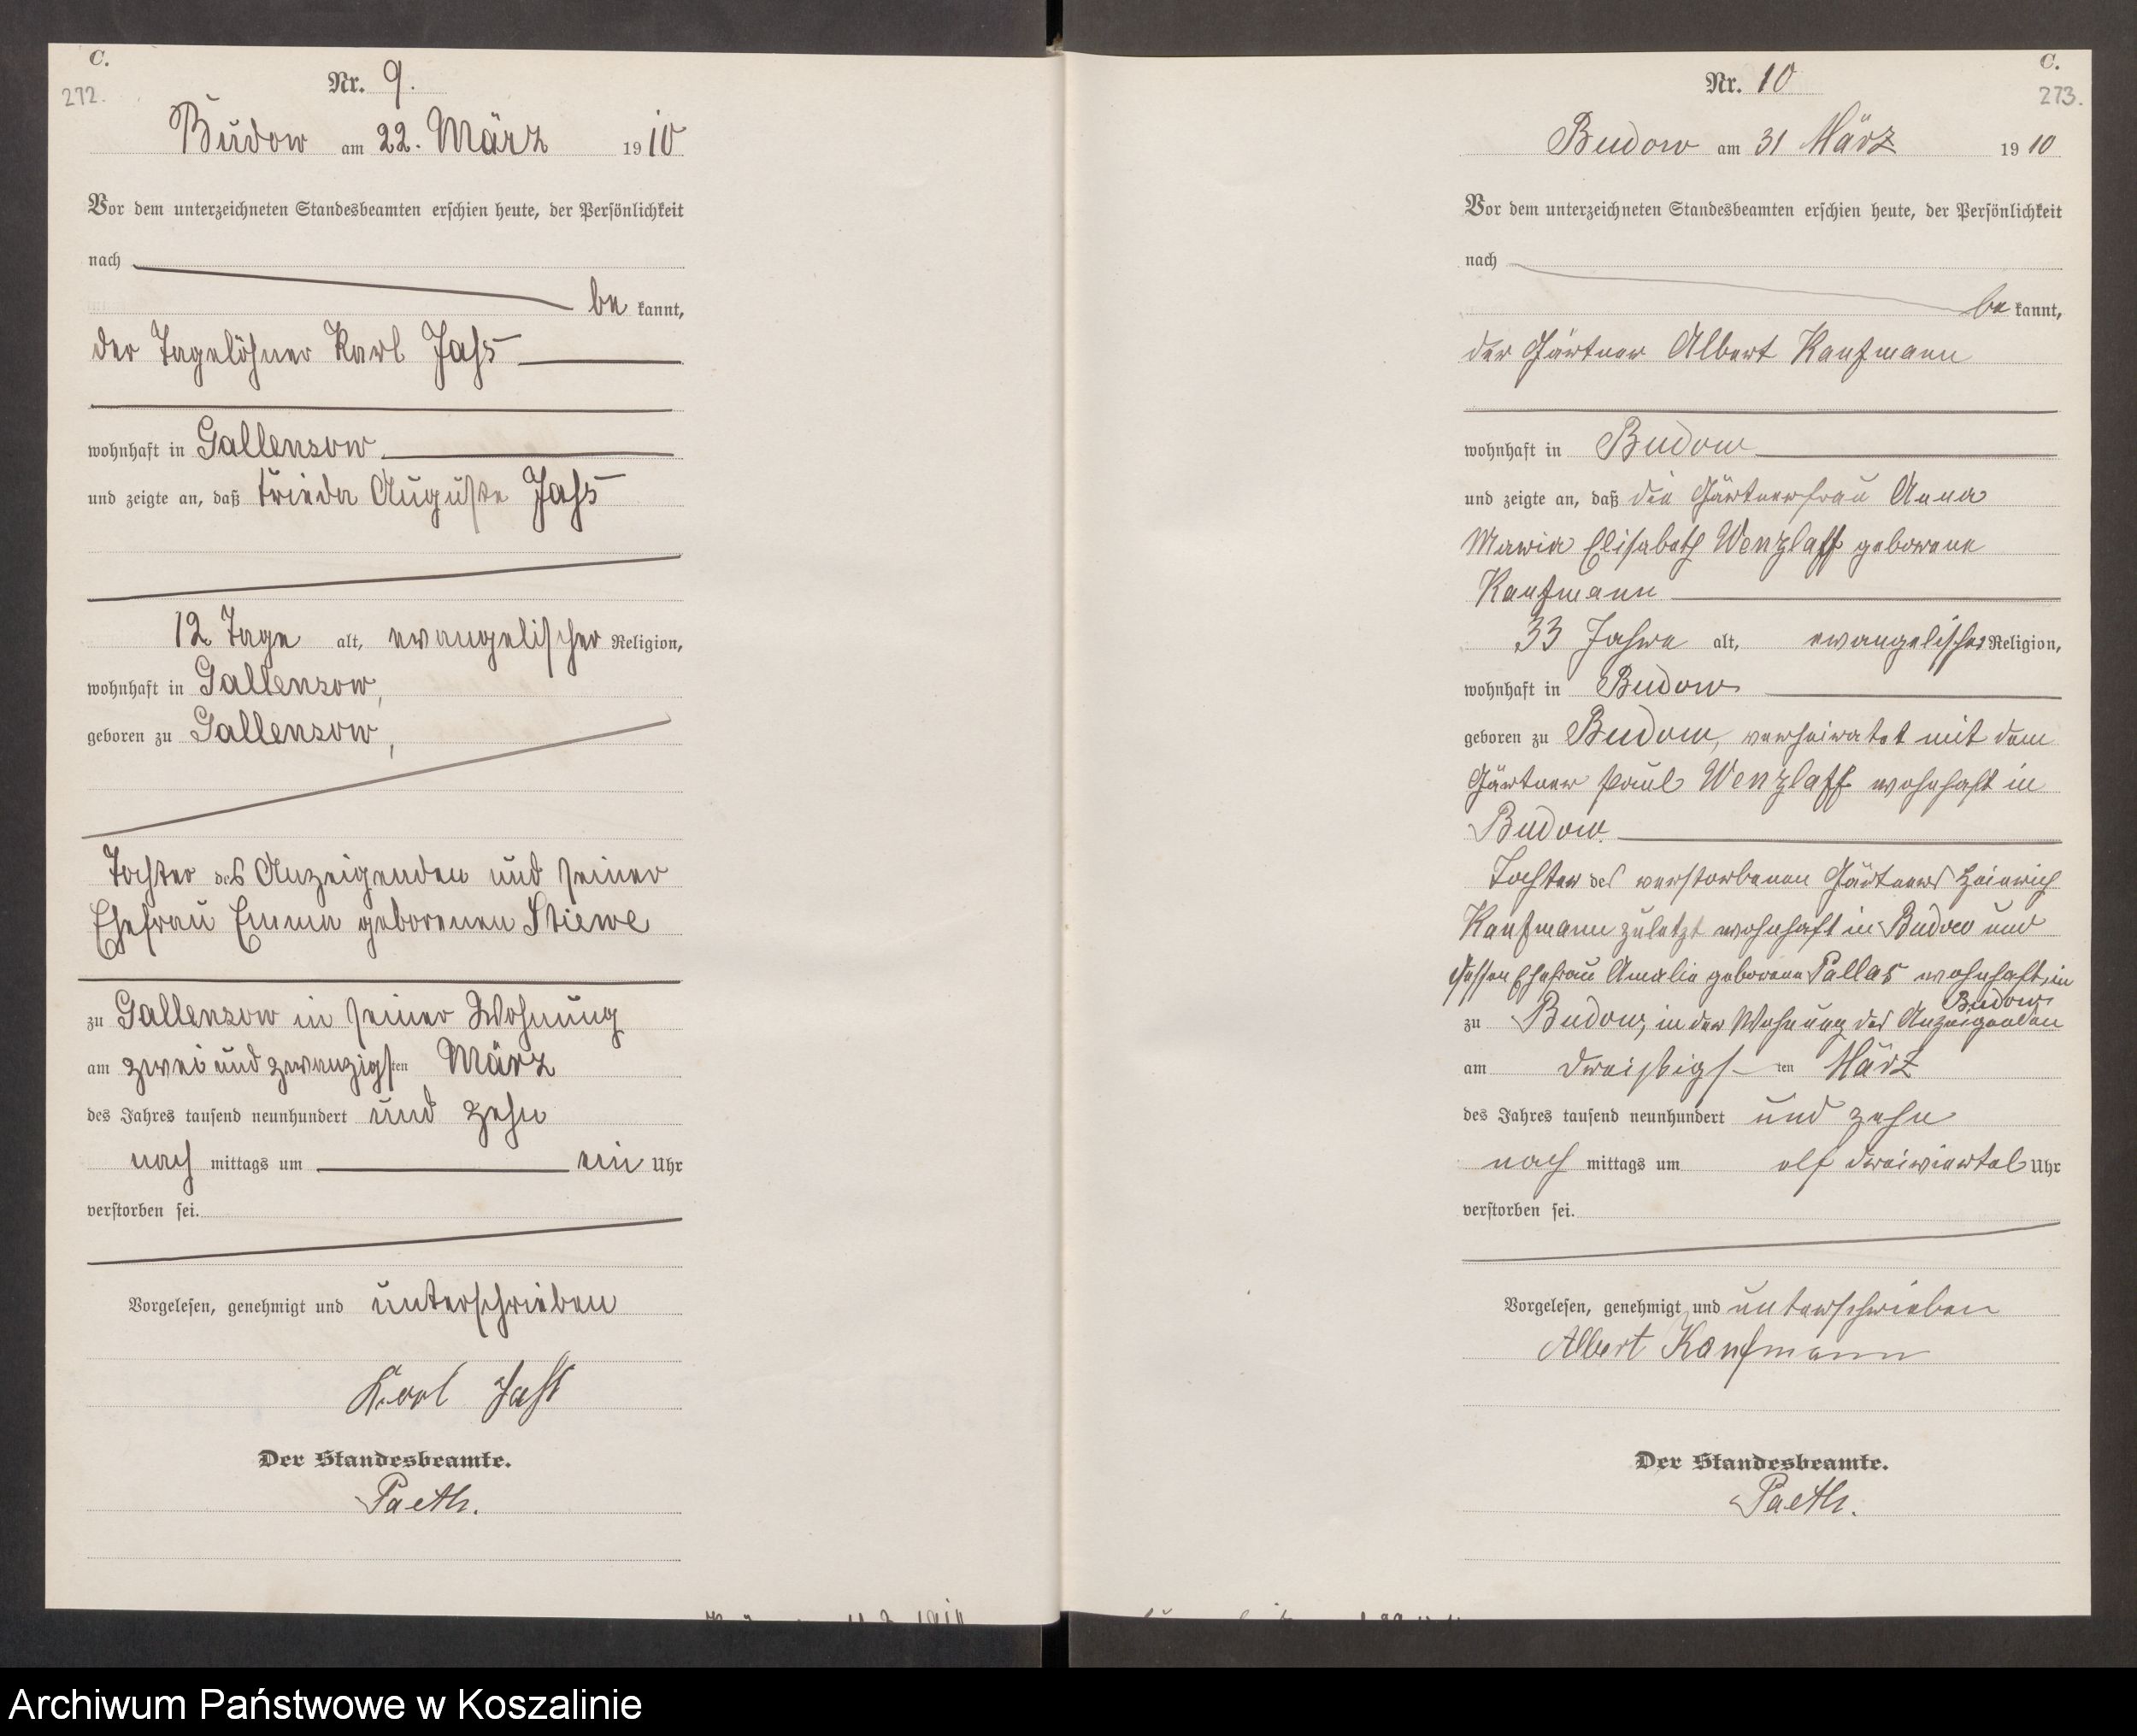 C.
272.
Nr. 9.
Budow am 22. März 1910
Vor dem unterzeichneten Standesbeamten erschien heute, der Persönlichkeit
nach
be kannt,
der Tagelöhner Karl Jahs
wohnhaft in Gallensow
und zeigte an, daß Frieda Auguste Jahs
12 Tage alt, evangelischer Religion,
wohnhaft in Gallensow,
geboren zu Gallensow,
Tochter des Anzeigenden und seiner
Ehefrau Emma geborenen Stiewe
zu Gallensow in seiner Wohnung
am zwei und zwanzigsten März
des Jahres tausend neunhundert und zehn
nach mittags um ein Uhr
verstorben sei.
Vorgelesen, genehmigt und unterschrieben
Karl Jahs
Der Standesbeamte.
Paeth.
C.
273.
Nr. 10
Budow am 31 März 1910
Vor dem unterzeichneten Standesbeamten erschien heute, der Persönlichkeit
nach
be kannt,
der Gärtner Albert Kaufmann
wohnhaft in Budow
und zeigte an, daß die Gärtnerfrau Anna
Maria Elisabeth Wenzlaff geborene
Kaufmann
33 Jahre alt, evangelischer Religion,
wohnhaft in Budow
geboren zu Budow, verheiratet mit dem
Gärtner Paul Wenzlaff wohnhaft in
Budow.
Tochter des verstorbenen Gärtners Heinrich
Kaufmann zuletzt wohnhaft in Budow und
dessen Ehefrau Amalie geborene Pallas wohnhaft in
Budow
zu Budow, in der Wohnung des Anzeigenden
am dreißigsten März
des Jahres tausend neunhundert und zehn
nach mittags um elf dreiviertel Uhr
verstorben sei.
Vorgelesen, genehmigt und unterschrieben
Albert Kaufmann
Der Standesbeamte.
Paeth.
Archiwum Państwowe w Koszalinie